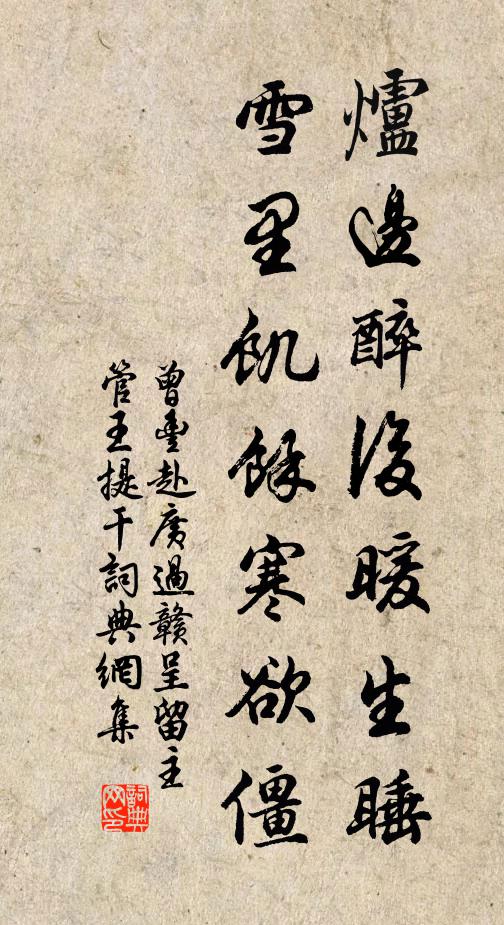 爐邊醉後暖生睡
雪里飢餘寒欲僵
曾豐赴廣過贛呈留主
管王提干詞典網集
詞典网印